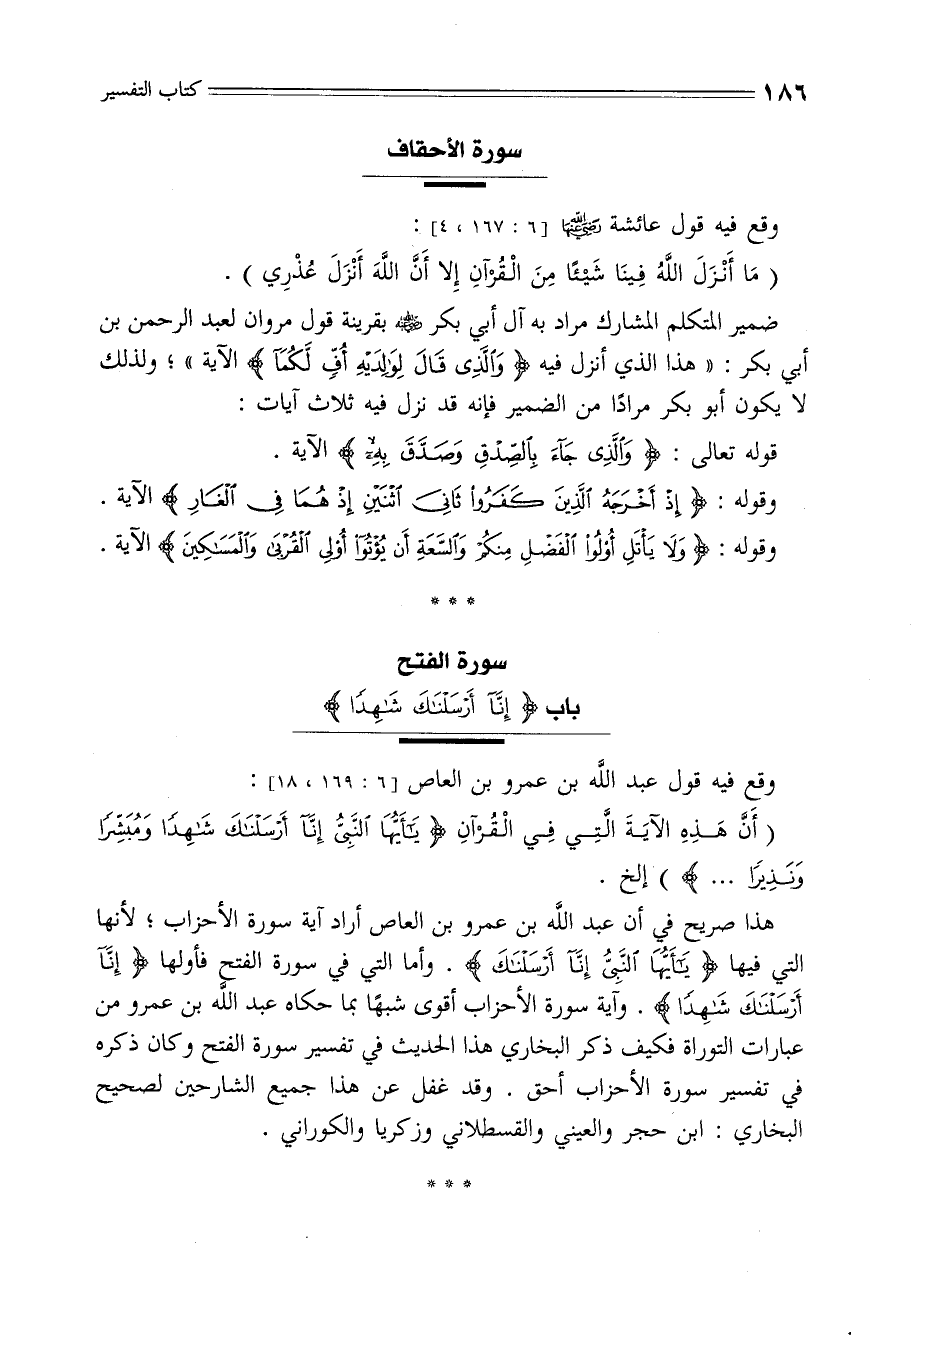 ١٨٦ كتاب التفسير
سورة الأحقاف
وقع فيه قول عائشة رضي الله عنها [٦ : ١٦٧ ، ٤] :
( مَا أَنْزَلَ اللَّهُ فِينَا شَيْئًا مِنَ الْقُرْآنِ إِلا أَنَّ اللَّهَ أَنْزَلَ عُذْرِي ) .
ضمير المتكلم المشارك مراد به آل أبي بكر رضي الله عنه بقرينة قول مروان لعبد الرحمن بن
أبي بكر : « هذا الذي أنزل فيه ﴿ وَٱلَّذِى قَالَ لِوَٰلِدَيْهِ أُفٍّ لَّكُمَآ ﴾ الآية » ؛ ولذلك
لا يكون أبو بكر مرادًا من الضمير فإنه قد نزل فيه ثلاث آيات :
قوله تعالى : ﴿ وَٱلَّذِى جَآءَ بِٱلصِّدْقِ وَصَدَّقَ بِهِۦٓ ۙ ﴾ الآية .
وقوله : ﴿ إِذْ أَخْرَجَهُ ٱلَّذِينَ كَفَرُوا۟ ثَانِىَ ٱثْنَيْنِ إِذْ هُمَا فِى ٱلْغَارِ ﴾ الآية .
وقوله : ﴿ وَلَا يَأْتَلِ أُو۟لُوا۟ ٱلْفَضْلِ مِنكُمْ وَٱلسَّعَةِ أَن يُؤْتُوٓا۟ أُو۟لِى ٱلْقُرْبَىٰ وَٱلْمَسَٰكِينَ ﴾ الآية .
* * *
سورة الفتح
باب ﴿ إِنَّآ أَرْسَلْنَٰكَ شَٰهِدًا ﴾
وقع فيه قول عبد اللَّه بن عمرو بن العاص [٦ : ١٦٩ ، ١٨] :
( أَنَّ هَذِهِ الآيَةَ الَّتِي فِي الْقُرْآنِ ﴿ يَٰٓأَيُّهَا ٱلنَّبِىُّ إِنَّآ أَرْسَلْنَٰكَ شَٰهِدًا وَمُبَشِّرًا
وَنَذِيرًا ... ﴾ ) إلخ .
هذا صريح في أن عبد اللَّه بن عمرو بن العاص أراد آية سورة الأحزاب ؛ لأنها
التي فيها ﴿ يَٰٓأَيُّهَا ٱلنَّبِىُّ إِنَّآ أَرْسَلْنَٰكَ ﴾ . وأما التي في سورة الفتح فأولها ﴿ إِنَّآ
أَرْسَلْنَٰكَ شَٰهِدًا ﴾ . وآية سورة الأحزاب أقوى شبهًا بما حكاه عبد اللَّه بن عمرو من
عبارات التوراة فكيف ذكر البخاري هذا الحديث في تفسير سورة الفتح وكان ذكره
في تفسير سورة الأحزاب أحق . وقد غفل عن هذا جميع الشارحين لصحيح
البخاري : ابن حجر والعيني والقسطلاني وزكريا والكوراني .
* * *